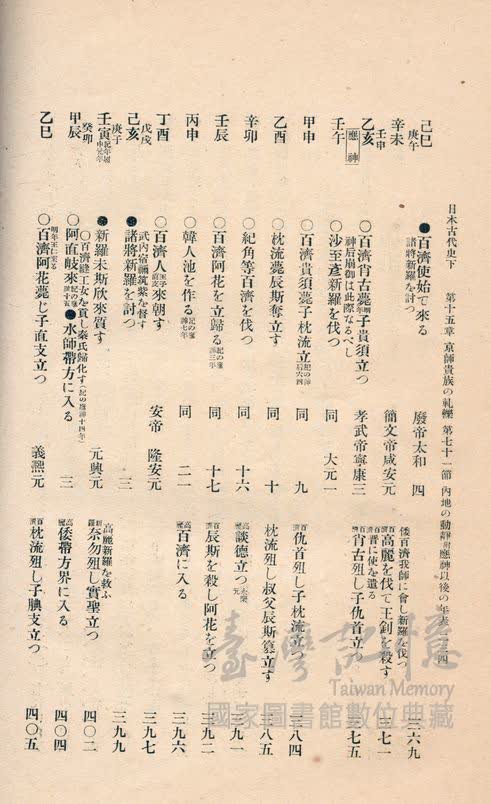 日本古代史下　第十五章 京師貴族の軋轢 第七十一節 內地の動靜附應神以後の年表　二一四
己巳　●百濟使始て來る　廢帝太和　四　三六九
庚午　諸將新羅を討つ　倭百濟我師に會し新羅を伐つ
辛未　簡文帝咸安元　百濟高麗を伐て王釗を殺す　三七一
壬申　百濟晋に使を遣る
乙亥　〇百濟肖古薨子貴須立つ　孝武帝寧康三　百濟肖古殂し子仇首立つ　三七五
應神　神后崩御は此際なるべし
壬午　〇沙至彥新羅を伐つ　同　大元一
甲申　〇百濟貴須薨子枕流立つ　同　九　百濟仇首殂し子枕流立つ　三八四
乙酉　〇枕流薨辰斯奪立す　同　十　枕流殂し叔父辰斯簒立す　三八五
辛卯　〇紀角等百濟を伐つ　同　十六　高麗談德立つ　三九一
壬辰　〇百濟阿花を立歸る　同　十七　百濟辰斯を殺し阿花を立つ　三九二
丙申　〇韓人池を作る　同　二一　高麗百濟に入る　三九六
丁酉　〇百濟人來朝す　安帝　隆安元　三九七
戊戌　武內宿禰筑紫を督す
己亥　●諸將新羅を討つ　三　三九九
庚子　高麗新羅を救ふ
壬寅　●新羅未斯欣來質す　元興元　新羅奈勿殂し實聖立つ　四〇二
癸卯　〇百濟縫工女を貢し秦氏歸化す
甲辰　〇阿直岐來　●水師帶方に入る　三　高麗倭帶方界に入る　四〇四
乙巳　〇百濟阿花薨じ子直支立つ　義熙元　百濟枕流殂し子腆支立つ　四〇五
臺灣記憶
Taiwan Memory
國家圖書館數位典藏